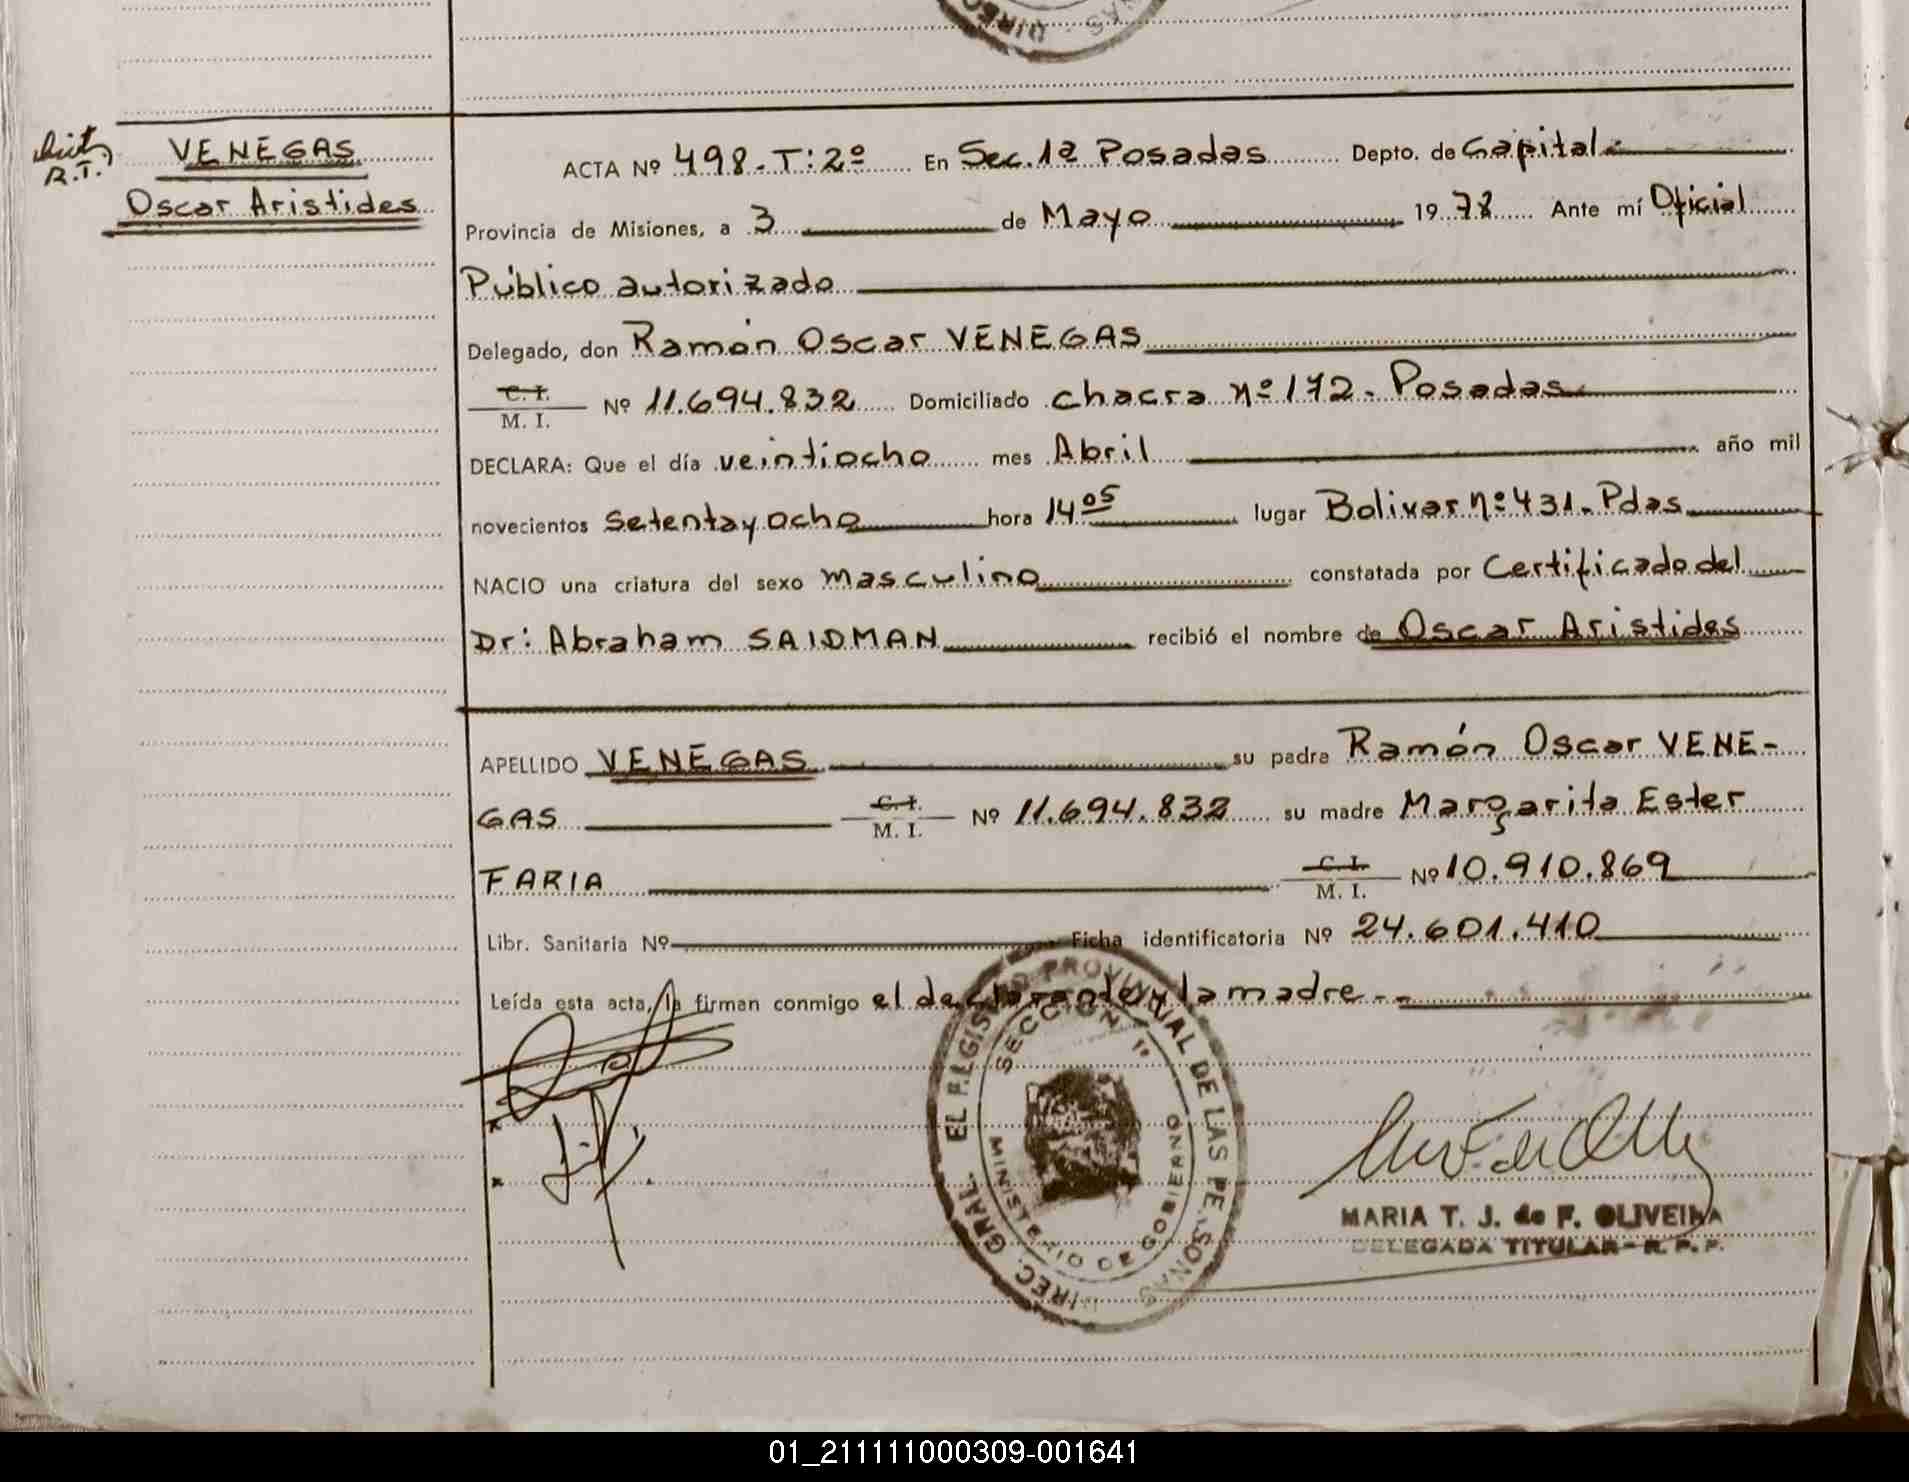 DIREC NAS
R.T.
VENEGAS
Oscar Aristides
ACTA Nº 498-T:2º En Sec.1ª Posadas Depto. de Capital
Provincia de Misiones, a 3 de Mayo 1978 Ante mí Oficial
Público autorizado
Delegado, don Ramón Oscar VENEGAS
C. I.
M. I. Nº 11.694.832 Domiciliado chacra nº 172- Posadas
DECLARA: Que el día veintiocho mes Abril año mil
novecientos setenta y ocho hora 14 05 lugar Bolivar nº 431- Pdas
NACIO una criatura del sexo masculino constatada por Certificado del
Dr: Abraham SAIDMAN recibió el nombre de Oscar Aristides
APELLIDO VENEGAS su padre Ramón Oscar VENE-
GAS C. I. M. I. Nº 11.694.832 su madre Margarita Ester
FARIA C. I. M. I. Nº 10.910.869
Libr. Sanitaria Nº Ficha identificatoria Nº 24.601.410
Leída esta acta, la firman conmigo el declarante y la madre--
DIREC. GRAL. DEL REGISTRO PROVINCIAL DE LAS PERSONAS
SECCION 1º
MINISTERIO DE GOBIERNO
MARIA T. J. de F. OLIVEIRA
DELEGADA TITULAR - R. P. P.
01_211111000309-001641